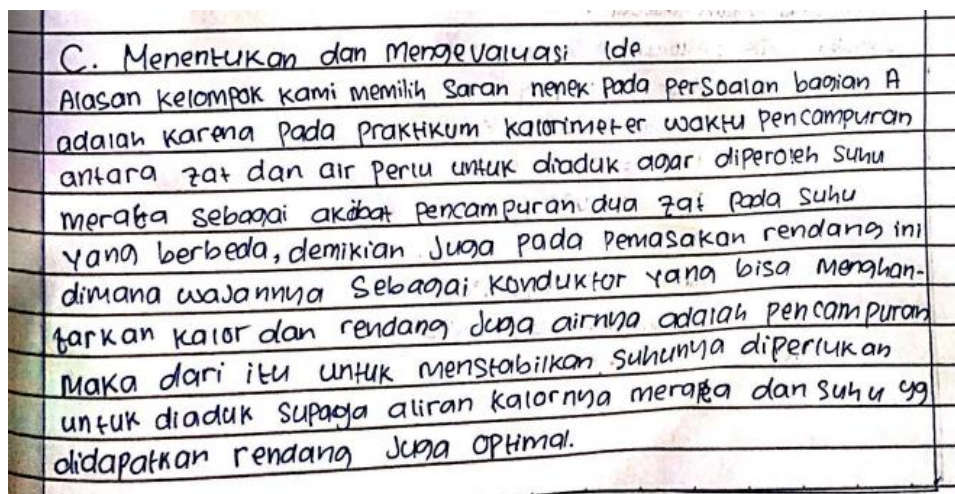 C. Menentukan dan mengevaluasi ide
Alasan kelompok kami memilih saran nenek pada persoalan bagian A
adalah karena pada praktikum kalorimeter waktu pencampuran
antara zat dan air perlu untuk diaduk agar diperoleh suhu
merata sebagai akibat pencampuran dua zat pada suhu
yang berbeda, demikian juga pada pemasakan rendang ini
dimana wajannya sebagai konduktor yang bisa menghan-
tarkan kalor dan rendang juga airnya adalah pencampuran
maka dari itu untuk menstabilkan suhunya diperlukan
untuk diaduk supaya aliran kalornya merata dan suhu yg
didapatkan rendang juga optimal.